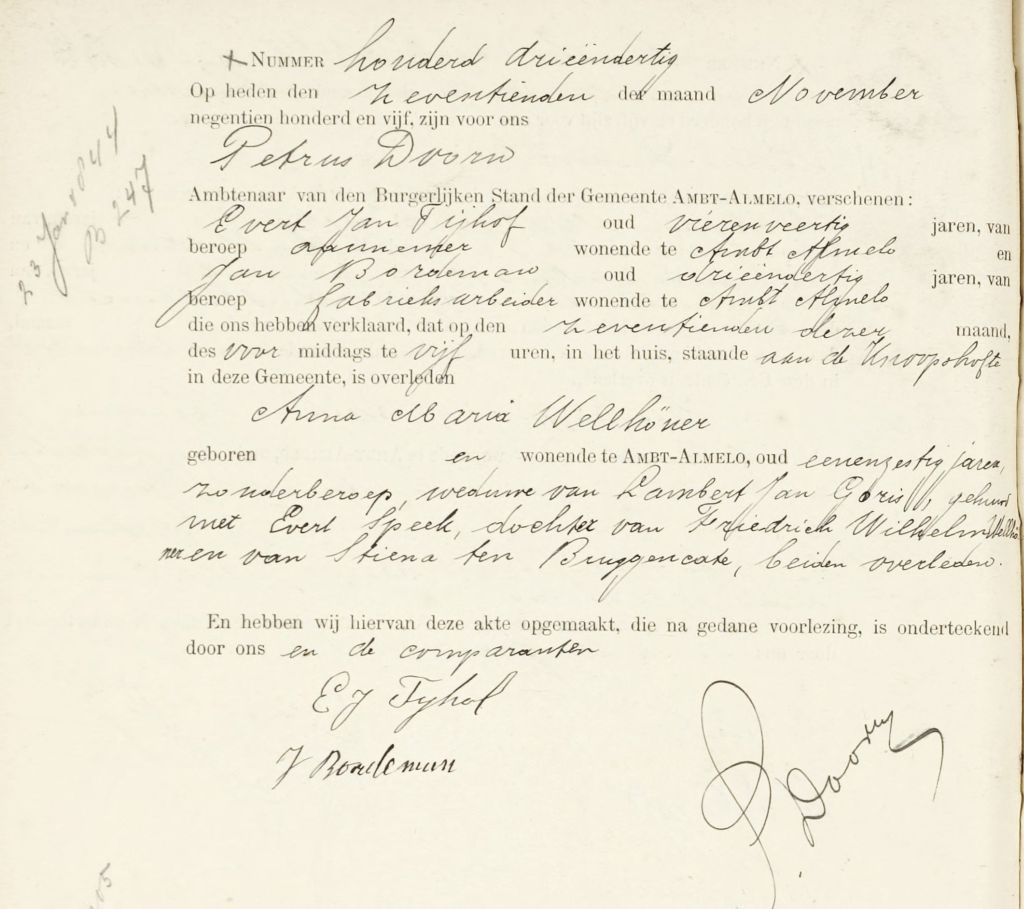 + NUMMER honderd drieëndertig
Op heden den zeventienden der maand November
negentien honderd en vijf, zijn voor ons
Petrus Doorn
Ambtenaar van den Burgerlijken Stand der Gemeente AMBT-ALMELO, verschenen:
Evert Jan Tijhof oud vierenveertig jaren, van
beroep aannemer wonende te Ambt Almelo en
Jan Bordeman oud drieëndertig jaren, van
beroep fabrieksarbeider wonende te Ambt Almelo
die ons hebben verklaard, dat op den zeventienden dezer maand,
des voor middags te vijf uren, in het huis, staande aan de Knoopshofte
in deze Gemeente, is overleden
Anna Maria Wellhöner
geboren en wonende te AMBT-ALMELO, oud eenenzestig jaren,
zonder beroep, weduwe van Lambert Jan Goris, gehuwd
met Evert Speek, dochter van Friedrich Wilhelm Wellhö
ner en van Stiena ten Bruggencate, beiden overleden.
En hebben wij hiervan deze akte opgemaakt, die na gedane voorlezing, is onderteekend
door ons en de comparanten
E J Tyhof
J Bordeman
P. Doorn
23 Jan 1844
B 247